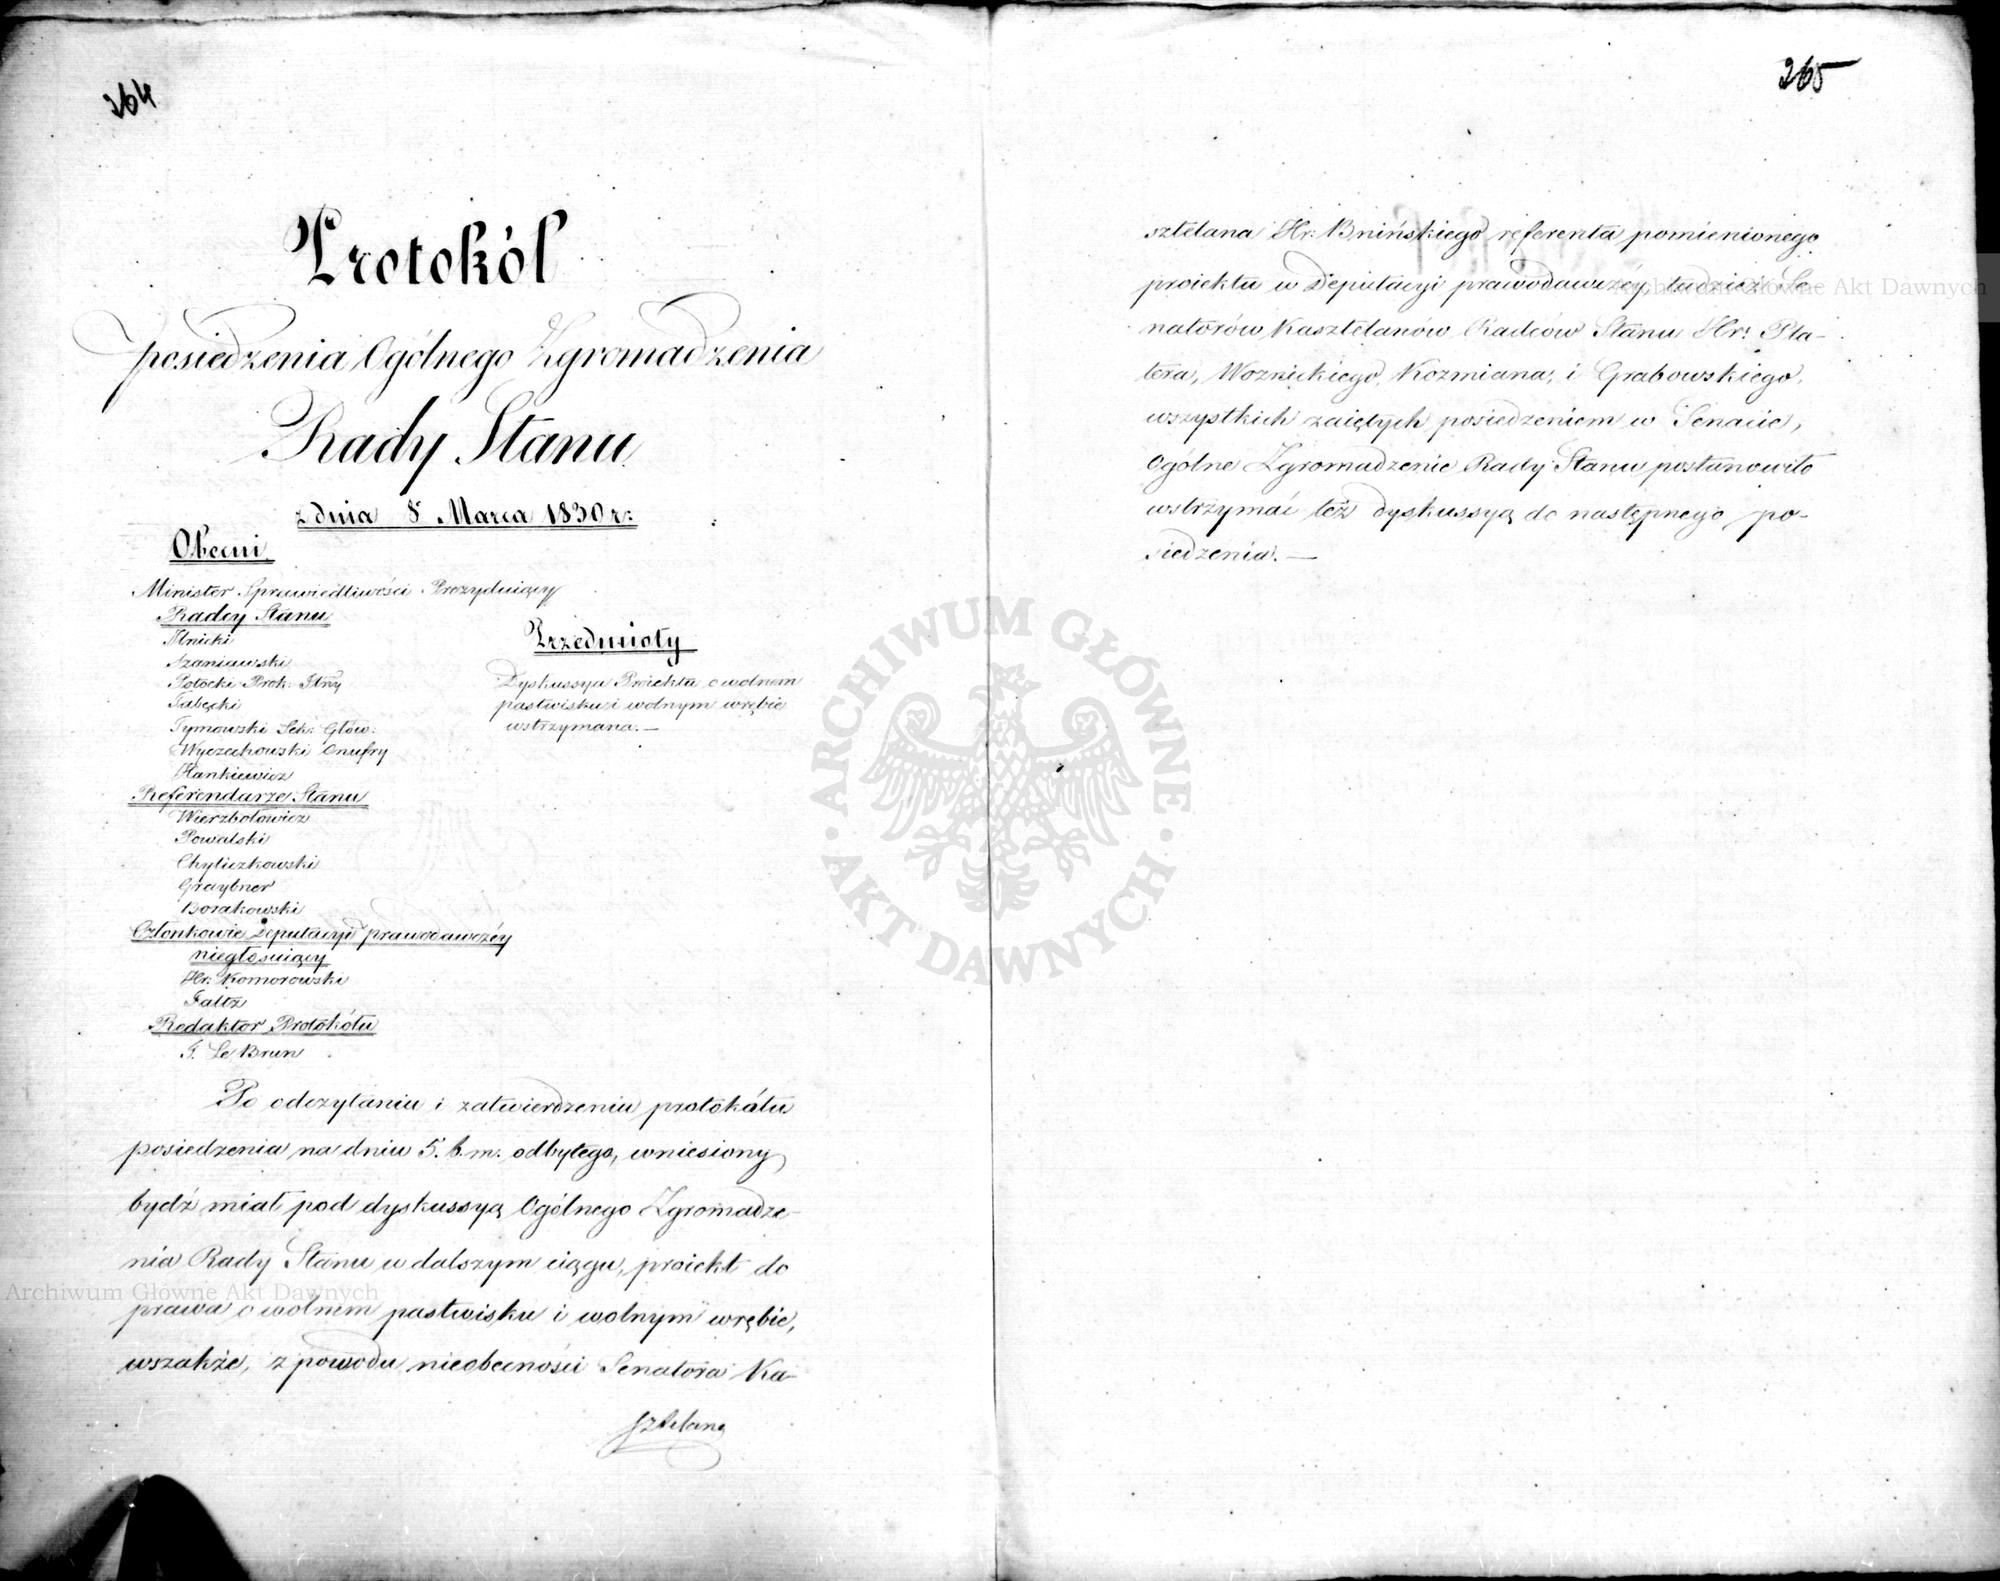 264
Protokół
posiedzenia Ogólnego Zgromadzenia
Rady Stanu
z dnia 8 Marca 1830 r:
Obecni
Minister Sprawiedliwości Prezyduiący
Radcy Stanu
Szaniawski
Potocki Prok: Jlny
Tymowski Sek: Głów:
Wyczechowski Onufry
Hankiewicz
Referendarze Stanu
Wierzbołowicz
Powalski
Chyliczkowski
Graybner
Borakowski
Członkowie Deputacyi prawodawczéy
niegłosuiący
Hr. Komorowski
Faltz
Redaktor Protokółu
F. Le Brun
Przedmioty
Dyskussya Proiektu o wolnem
pastwisku i wolnym wrębie
wstrzymana. —
Po odczytaniu i zatwierdzeniu protokółu
posiedzenia na dniu 5. b. m. odbytego, wniesiony
bydź miał pod dyskussyą Ogólnego Zgromadze-
nia Rady Stanu w dalszym ciągu, proiekt do
prawa o wolnem pastwisku i wolnym wrębie,
wszakże, z powodu nieobecności Senatora Ka-
sztelana
265
sztelana Hr: Bnińskiego referenta pomienionego
proiektu w Deputacyi prawodawczéy, tudzież Se
natorów Kasztelanów Radców Stanu Hr: Pla-
tera, Woznickiego, Kozmiana, i Grabowskiego,
wszystkich zaiętych posiedzeniem w Senacie,
Ogólne Zgromadzenie Rady Stanu postanowiło
wstrzymać też dyskussyą do następnego po-
siedzenia. —
ARCHIWUM GŁÓWNE
AKT DAWNYCH
Archiwum Główne Akt Dawnych
Archiwum Główne Akt Dawnych